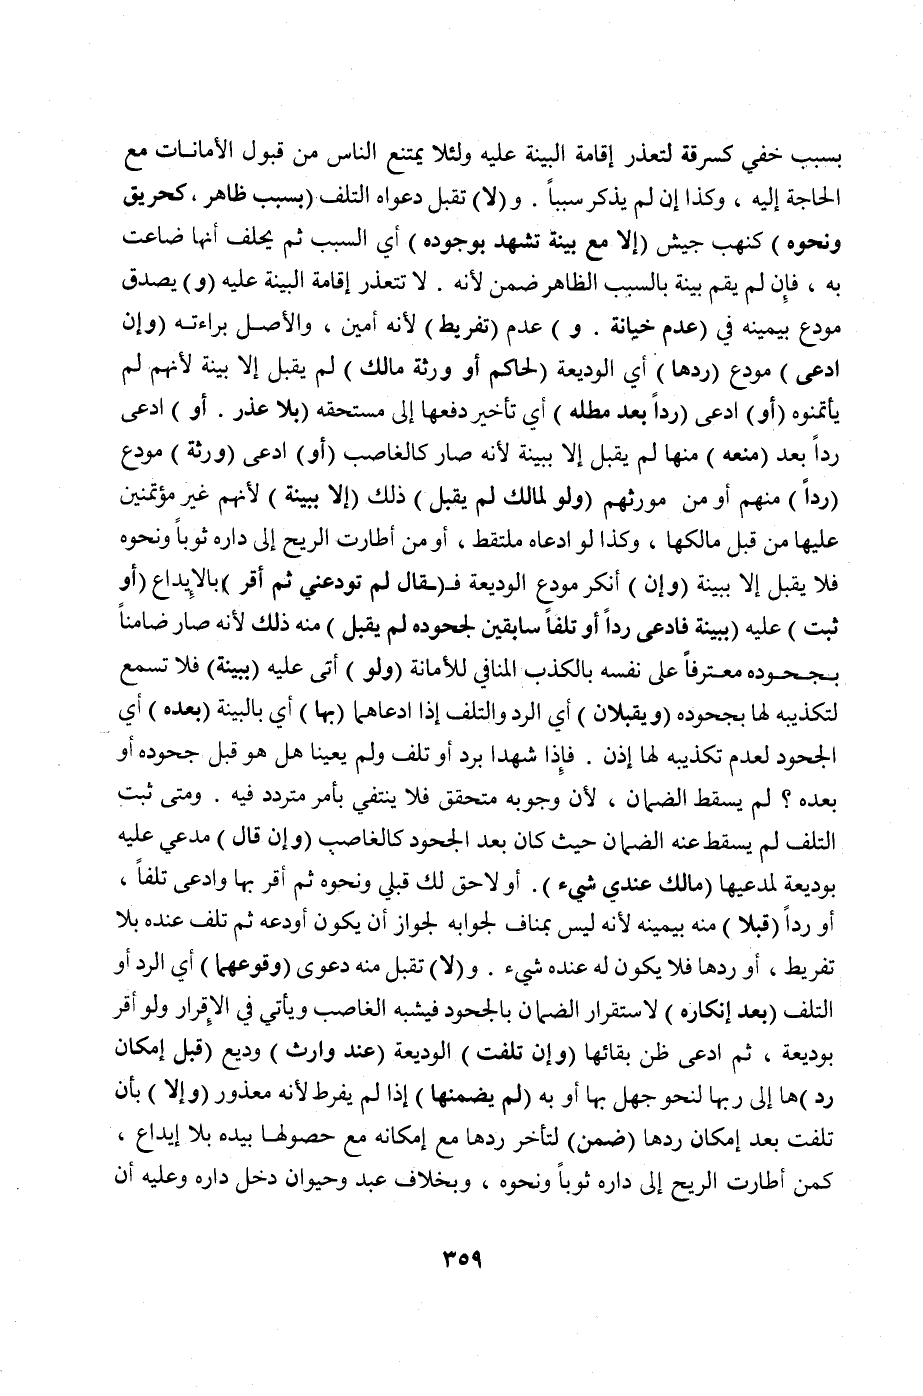 بسبب خفي كسرقة لتعذر إقامة البينة عليه ولئلا يمتنع الناس من قبول الأمانات مع
الحاجة إليه ، وكذا إن لم يذكر سبباً . و (لا) تقبل دعواه التلف (بسبب ظاهر ، كحريق
ونحوه ) كنهب جيش (إلا مع بينة تشهد بوجوده ) أي السبب ثم يحلف أنها ضاعت
به ، فإن لم يقم بينة بالسبب الظاهر ضمن لأنه . لا تتعذر إقامة البينة عليه (و) يصدق
مودع بيمينه في (عدم خيانة . و ) عدم (تفريط ) لأنه أمين ، والأصل براءته (وإن
ادعى ) مودع (ردها ) أي الوديعة (لحاكم أو ورثة مالك ) لم يقبل إلا بينة لأنهم لم
يأتمنوه (أو) ادعى (رداً بعد مطله ) أي تأخير دفعها إلى مستحقه (بلا عذر . أو ) ادعى
رداً بعد (منعه ) منها لم يقبل إلا ببينة لأنه صار كالغاصب (أو) ادعى (ورثة ) مودع
(رداً ) منهم أو من مورثهم (ولو لمالك لم يقبل ) ذلك (إلا ببينة ) لأنهم غير مؤتمنين
عليها من قبل مالكها ، وكذا لو ادعاه ملتقط ، أو من أطارت الريح إلى داره ثوباً ونحوه
فلا يقبل إلا ببينة (وإن ) أنكر مودع الوديعة فـ(ـقال لم تودعني ثم أقر )بالإيداع (أو
ثبت ) عليه (ببينة فادعى رداً أو تلفاً سابقين لجحوده لم يقبل ) منه ذلك لأنه صار ضامناً
بجحوده معترفاً على نفسه بالكذب المنافي للأمانة (ولو ) أتى عليه (ببينة) فلا تسمع
لتكذيبه لها بجحوده (ويقبلان ) أي الرد والتلف إذا ادعاهما (بها ) أي بالبينة (بعده ) أي
الجحود لعدم تكذيبه لها إذن . فإذا شهدا برد أو تلف ولم يعينا هل هو قبل جحوده أو
بعده ؟ لم يسقط الضمان ، لأن وجوبه متحقق فلا ينتفي بأمر متردد فيه . ومتى ثبت
التلف لم يسقط عنه الضمان حيث كان بعد الجحود كالغاصب (وإن قال ) مدعي عليه
بوديعة لمدعيها (مالك عندي شيء ). أو لا حق لك قبلي ونحوه ثم أقر بها وادعى تلفاً ،
أو رداً (قبلا ) منه بيمينه لأنه ليس بمناف لجوابه لجواز أن يكون أودعه ثم تلف عنده بلا
تفريط ، أو ردها فلا يكون له عنده شيء . و (لا) تقبل منه دعوى (وقوعهما ) أي الرد أو
التلف (بعد إنكاره ) لاستقرار الضمان بالجحود فيشبه الغاصب ويأتي في الإقرار ولو أقر
بوديعة ، ثم ادعى ظن بقائها (وإن تلفت ) الوديعة (عند وارث ) وديع (قبل إمكان
رد )ها إلى ربها لنحو جهل بها أو به (لم يضمنها ) إذا لم يفرط لأنه معذور (وإلا ) بأن
تلفت بعد إمكان ردها (ضمن) لتأخر ردها مع إمكانه مع حصولها بيده بلا إيداع ،
كمن أطارت الريح إلى داره ثوباً ونحوه ، وبخلاف عبد وحيوان دخل داره وعليه أن
٣٥٩